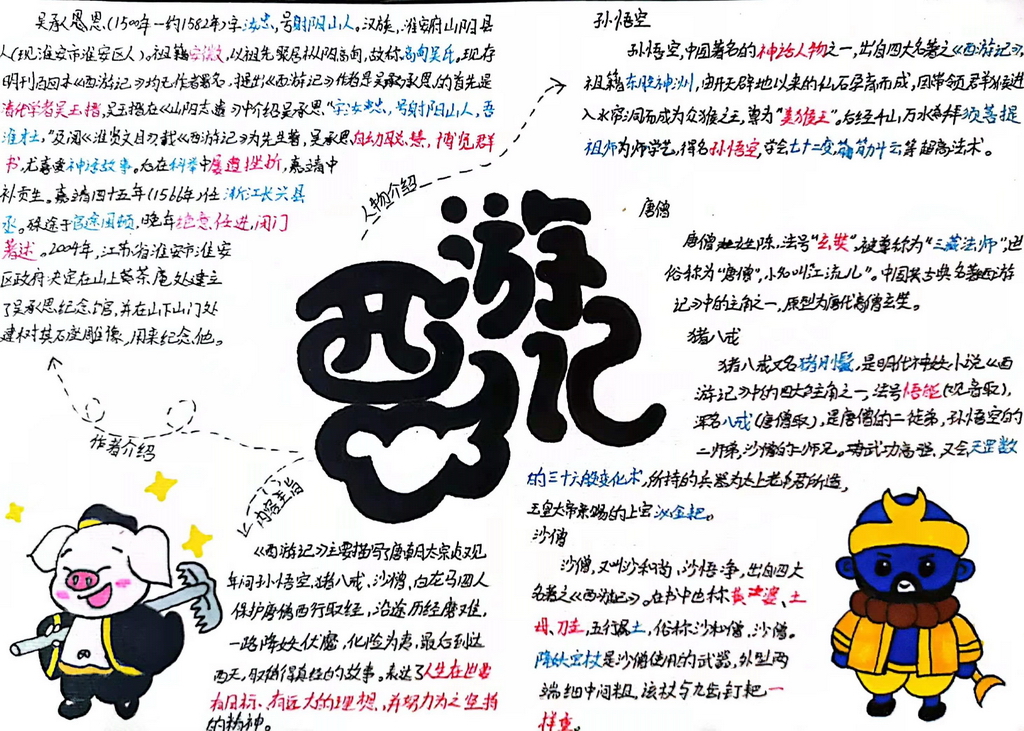 吴承恩(1500年一约1582年)字汝忠,号射阳山人。汉族,淮安府山阳县
人(现淮安市淮安区人)。祖籍安徽,以祖先聚居枞阳高甸,故称高甸吴氏。现存
明刊百回本《西游记》均无作者署名。提出《西游记》作者是吴承恩的首先是
清代学者吴玉搢,吴玉搢在《山阳志遗》中介绍吴承恩"字汝忠,号射阳山人,吾
淮才士",及阅《淮贤文目》载《西游记》为先生著,吴承恩自幼聪慧,博览群
书,尤喜爱神话故事。在科举中屡遭挫折,嘉靖中
补贡生。嘉靖四十五年(1566年)任浙江长兴县
丞。殊途于官途困顿,晚年绝意仕进,闭门
著述。2004年,江苏省淮安市淮安
区政府决定在山上葵茶庵处建立
了吴承恩纪念馆,并在山下山门处
建树其石座雕像,用来纪念他。
作者介绍
人物介绍
西游记
内容主旨
《西游记》主要描写了唐朝太宗贞观
年间孙悟空、猪八戒、沙僧、白龙马四人
保护唐僧西行取经,沿途历经磨难,
一路降妖伏魔,化险为夷,最后到达
西天,取得真经的故事。表达了人生在世要
有目标、有远大的理想,并努力为之坚持
的精神。
孙悟空
孙悟空,中国著名的神话人物之一,出自四大名著之《西游记》,
祖籍东胜神洲,由开天辟地以来的仙石孕育而成,因带领群猴进
入水帘洞而成为众猴之王,尊为"美猴王"。后经千山万水拜须菩提
祖师为师学艺,得名孙悟空,学会七十二变、筋斗云等超高法术。
唐僧
唐僧姓陈,法号"玄奘",被尊称为"三藏法师",世
俗称为"唐僧",小名叫江流儿"。中国古典名著西游
记》中的主角之一,原型为唐代高僧玄奘。
猪八戒
猪八戒又名猪刚鬣,是明代神妖小说《西
游记》中的四大主角之一,法号悟能(观音取),
浑名八戒(唐僧取),是唐僧的二徒弟,孙悟空的
二师弟,沙僧的二师兄。武功高强,又会天罡数
的三十六般变化术,所持的兵器为太上老君所造,
玉皇大帝亲赐的上宝沁金耙。
沙僧
沙僧,又叫沙和尚、沙悟净,出自四大
名著之《西游记》。在书中也称黄婆、土
母、刀圭,五行属土,俗称沙和僧、沙僧。
降妖宝杖是沙僧使用的武器,外型两
端细中间粗,该杖与九齿钉耙一
样重。